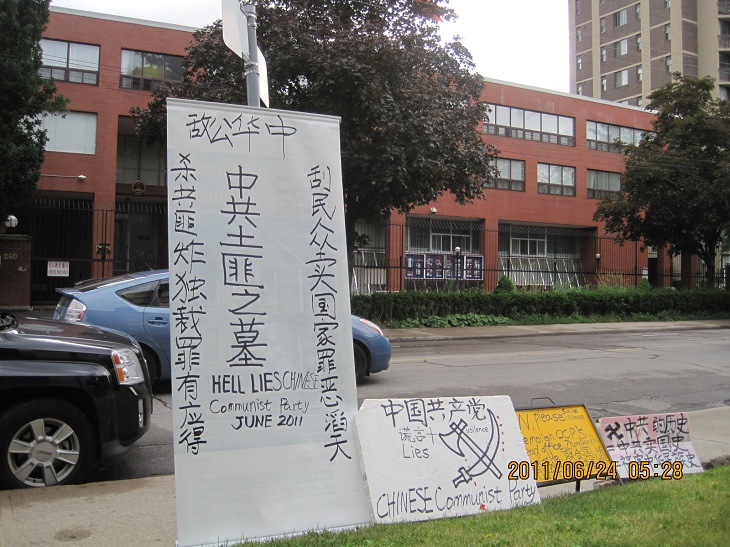 中华公敌
刮民众卖国家罪恶滔天
中共土匪之墓
杀共匪炸独裁罪有应得
HELL LIES CHINESE
Communist Party
JUNE 2011
中国共产党
谎言
Lies
violence
CHINESE Communist Party
Please
on CCP's
office
中共的历史
中共卖国史
240
2011/06/24 05:28